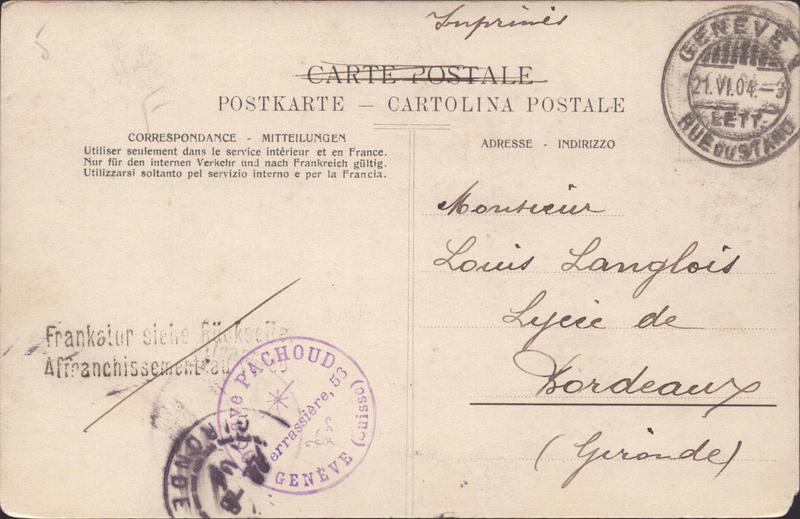 Imprimés
CARTE POSTALE
POSTKARTE — CARTOLINA POSTALE
GENÈVE 1
21.VI.04.–3
LETT.
RUE DU STAND
CORRESPONDANCE - MITTEILUNGEN
Utiliser seulement dans le service intérieur et en France.
Nur für den internen Verkehr und nach Frankreich gültig.
Utilizzarsi soltanto pel servizio interno e per la Francia.
ADRESSE - INDIRIZZO
Monsieur
Louis Langlois
Lycée de
Bordeaux
(Gironde)
Frankatur siehe Rückseite
Affranchissement au
PACHOUD
Terrassière, 53
GENÈVE (Suisse)
RONDE